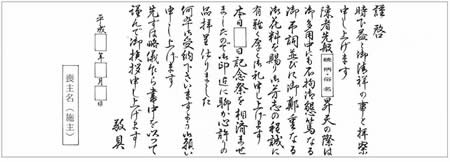 謹啓
時下益々御清祥の事と拝察
申し上げます
陳者先般 続柄・俗名 昇天の際は
御多用中にも不拘御懇篤なる
御弔詞並びに御鄭重なる
御花料を賜り御芳志の程誠に
有難く厚く御礼申し上げます
本日□日記念祭を相済ませ
ましたので御印迄に聊か心許りの
品拝呈仕りました
何卒御受納下さいますようお願い
申し上げます
先ずは略儀ながら書中を以って
謹んで御挨拶申し上げます
敬具
平成□年□月□日
喪主名（施主）